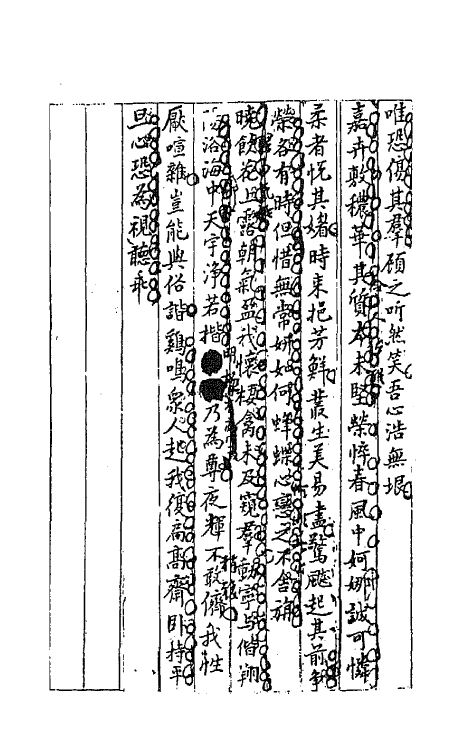 唯恐傷其羣顧之听然笑吾心浩無垠
嘉卉敷穠華其質本未堅榮悴春風中妸娜誠可憐
柔者悦其媎時來挹芳鮮叢生美易盡驚飈起其前争
榮各有時但惜無常妍如何蜂蝶心戀之不舍旃
曉飲花上露朝氣盈我懷棲禽未及窺羣動寧與偕翔
浴海中天宇淨若揩乃為尊夜輝不敢儕我性
厭喧雜豈能與俗諧鷄鳴衆人起我復高齋卧持平
旦心恐為視聽乖